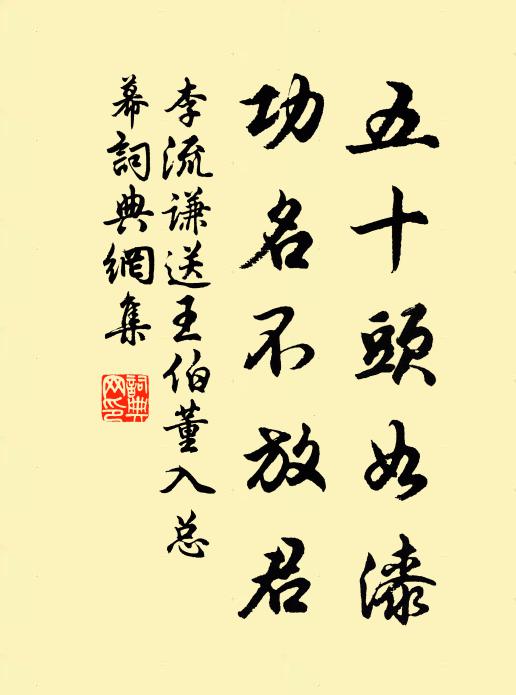 五十頭如漆
功名不放君
李流謙送王伯董入总
幕詞典網集
詞典網印